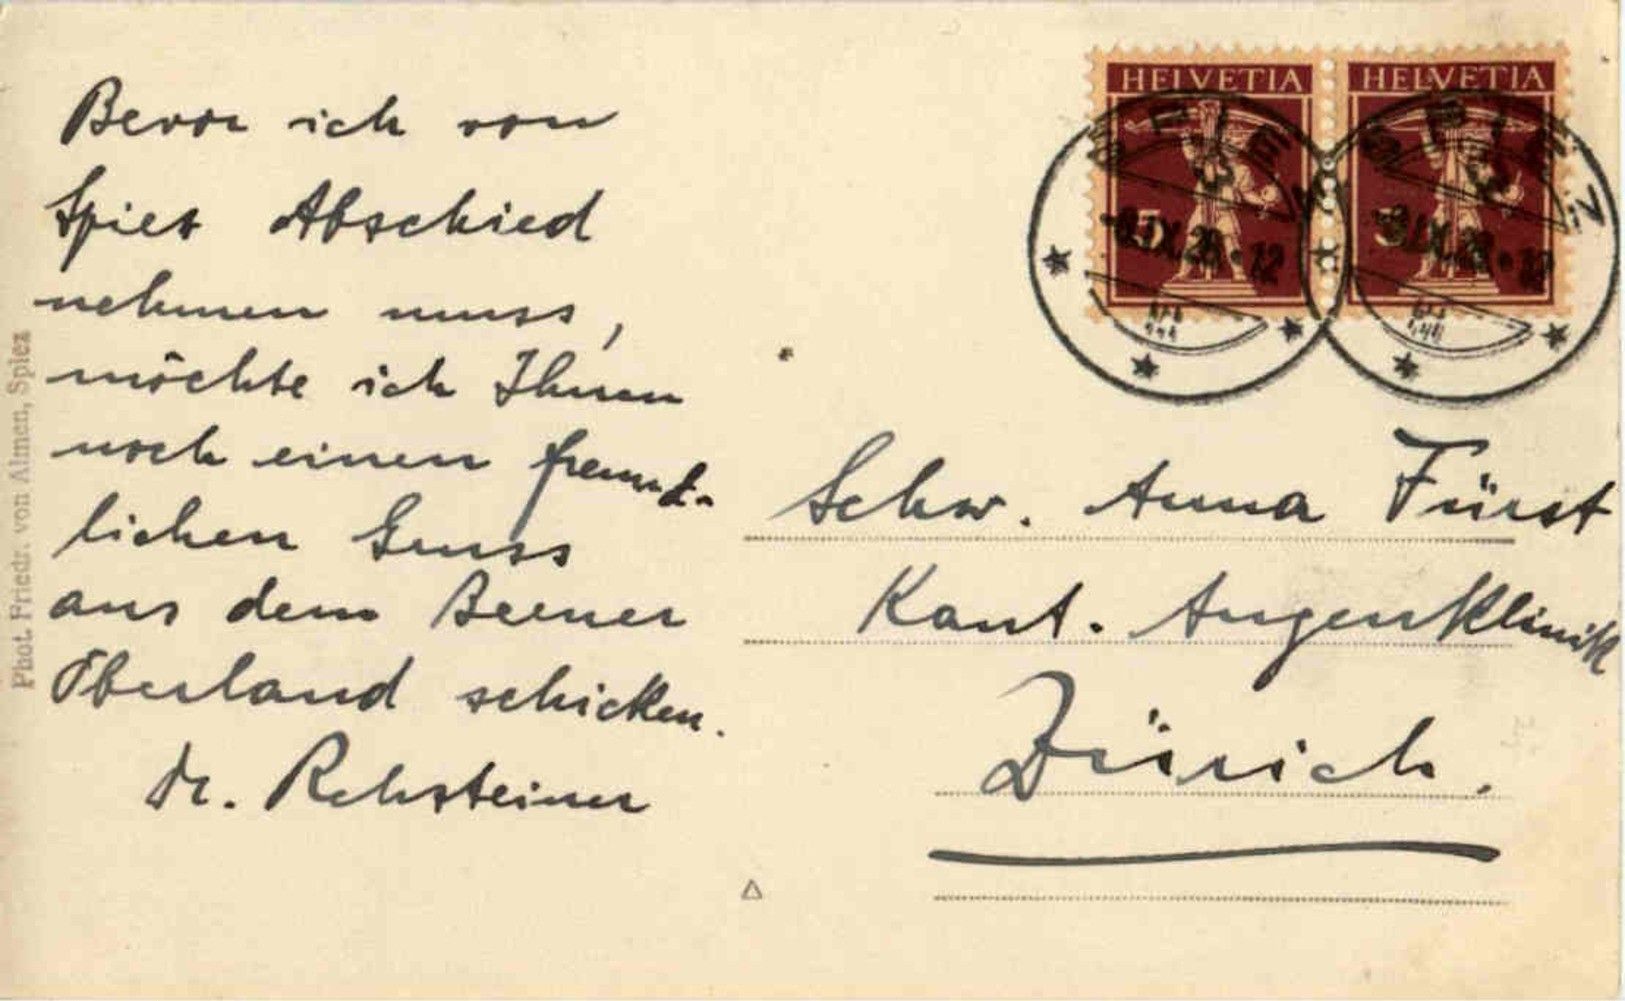 Bevor ich von
Spiez Abschied
nehmen muss,
möchte ich Ihnen
noch einen freund-
lichen Gruss
aus dem Berner
Oberland schicken.
Dr. Rehsteiner
HELVETIA HELVETIA
SPIEZ SPIEZ
Schw. Anna Fürst
Kant. Augenklinik
Zürich.
Phot. Friedr. von Almen, Spiez